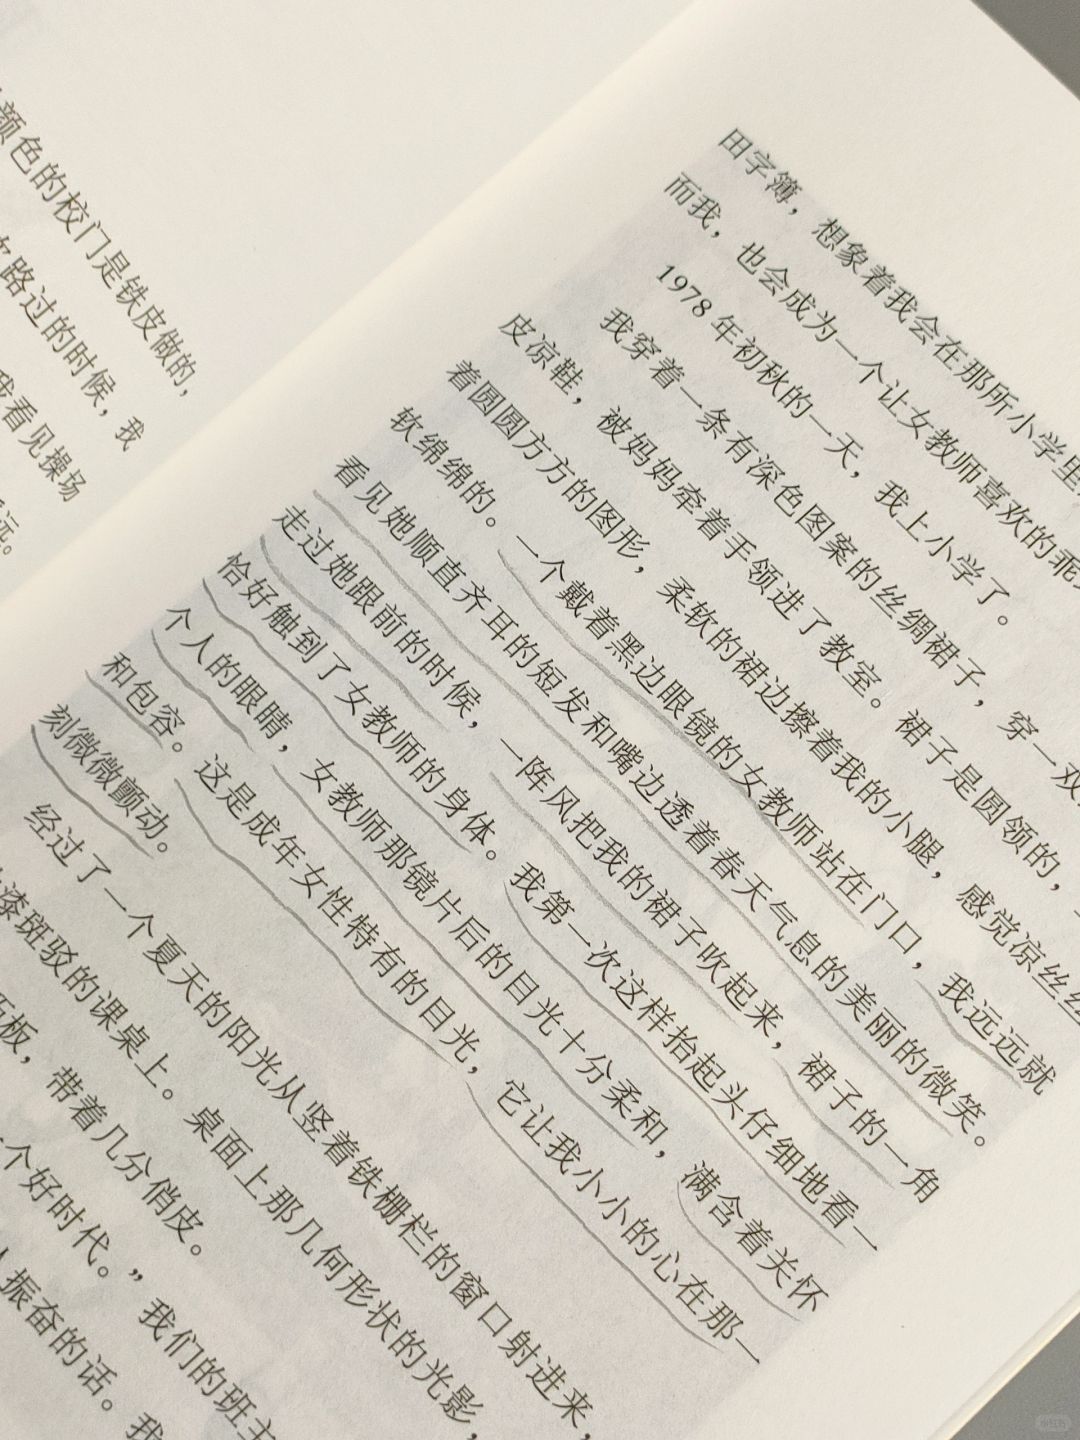 颜色的校门是铁皮做的，
路过的时候，我
我看见操场
远。
田字簿，想象着我会在那所小学里
而我，也会成为一个让女教师喜欢的乖
1978年初秋的一天，我上小学了。
我穿着一条有深色图案的丝绸裙子，穿一双
皮凉鞋，被妈妈牵着手领进了教室。裙子是圆领的，
着圆圆方方的图形，柔软的裙边擦着我的小腿，感觉凉丝丝
软绵绵的。一个戴着黑边眼镜的女教师站在门口，我远远就
看见她顺直齐耳的短发和嘴边透着春天气息的美丽的微笑。
走过她跟前的时候，一阵风把我的裙子吹起来，裙子的一角
恰好触到了女教师的身体。我第一次这样抬起头仔细地看一
个人的眼睛，女教师那镜片后的目光十分柔和，满含着关怀
和包容。这是成年女性特有的目光，它让我小小的心在那一
刻微微颤动。
经过了一个夏天的阳光从竖着铁栅栏的窗口射进来，
漆斑驳的课桌上。桌面上那几何形状的光影，
板，带着几分俏皮。
个好时代。”我们的班主
振奋的话。我